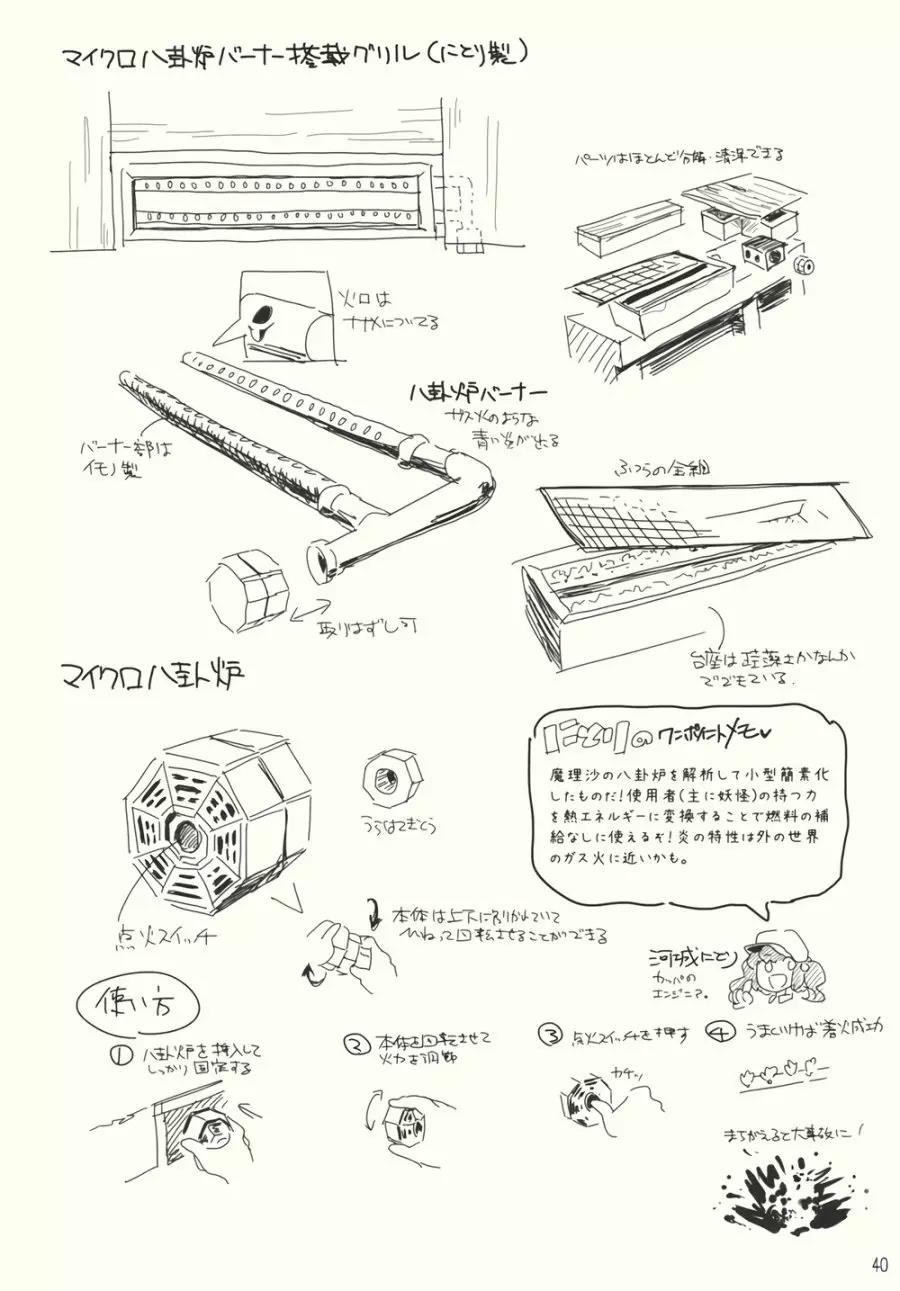 マイクロ八卦炉バーナー搭載グリル(にとり製)
パーツはほとんど分解・清浄できる
火口は
ナナメについてる
八卦炉バーナー
ガス火のような
青い炎が出る
バーナー部は
イモノ製
ふつうの金網
取りはずし可
台座は珪藻土かなんか
でできている.
マイクロ八卦炉
にとりのワンポイントメモ♥
魔理沙の八卦炉を解析して小型簡素化
したものだ!使用者(主に妖怪)の持つ力
を熱エネルギーに変換することで燃料の補
給なしに使えるぞ!炎の特性は外の世界
のガス火に近いかも。
うらはてきとう
点火スイッチ
本体は上下に分かれていて
ひねって回転させることができる
河城にとり
カッパの
エンジニア。
使い方
① 八卦炉を挿入して
しっかり固定する
② 本体を回転させて
火力を調節
③ 点火スイッチを押す
カチッ
④ うまくいけば着火成功
まちがえると大事故に!
40